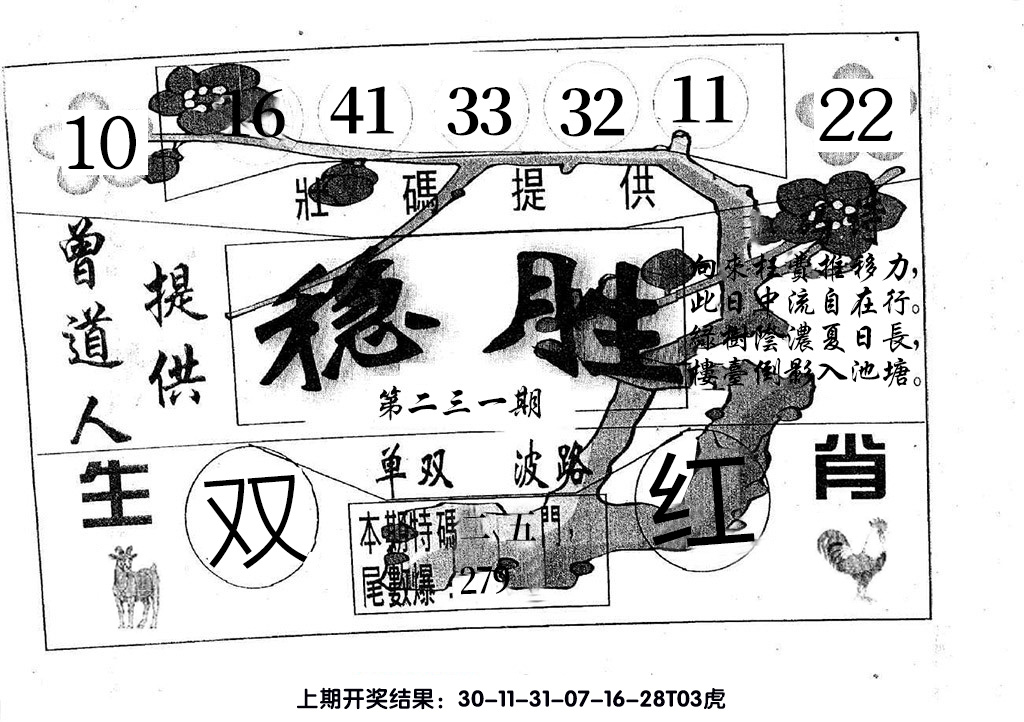 10 16 41 33 32 11 22
壯碼提供
曾道人
提供
稳胜
第二三一期
向來枉費推移力,
此日中流自在行。
綠樹陰濃夏日長,
樓臺倒影入池塘。
单双 波路
生肖
双
红
本期特碼二、五門,
尾數爆:279
上期开奖结果:30-11-31-07-16-28T03虎